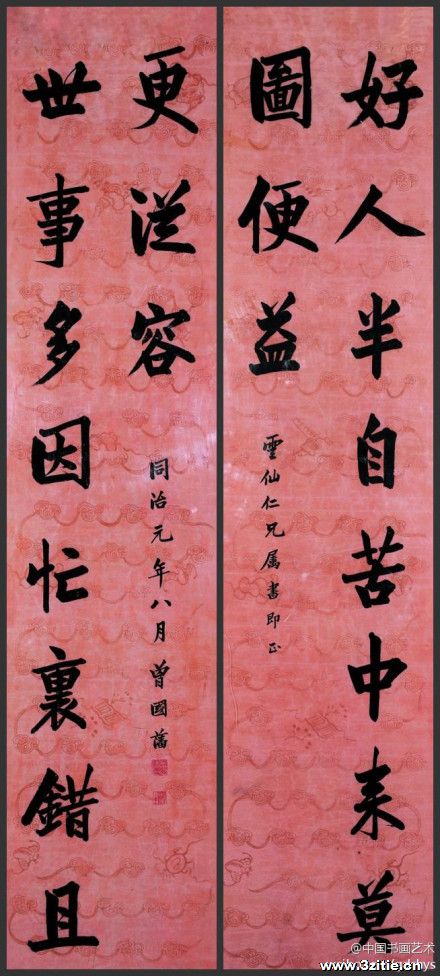 好人半自苦中来莫
圖便益
雲仙仁兄属書即正
世事多因忙裏錯且
更從容
同治元年八月曾國藩
@中国书画艺术
www.3zitie.cn